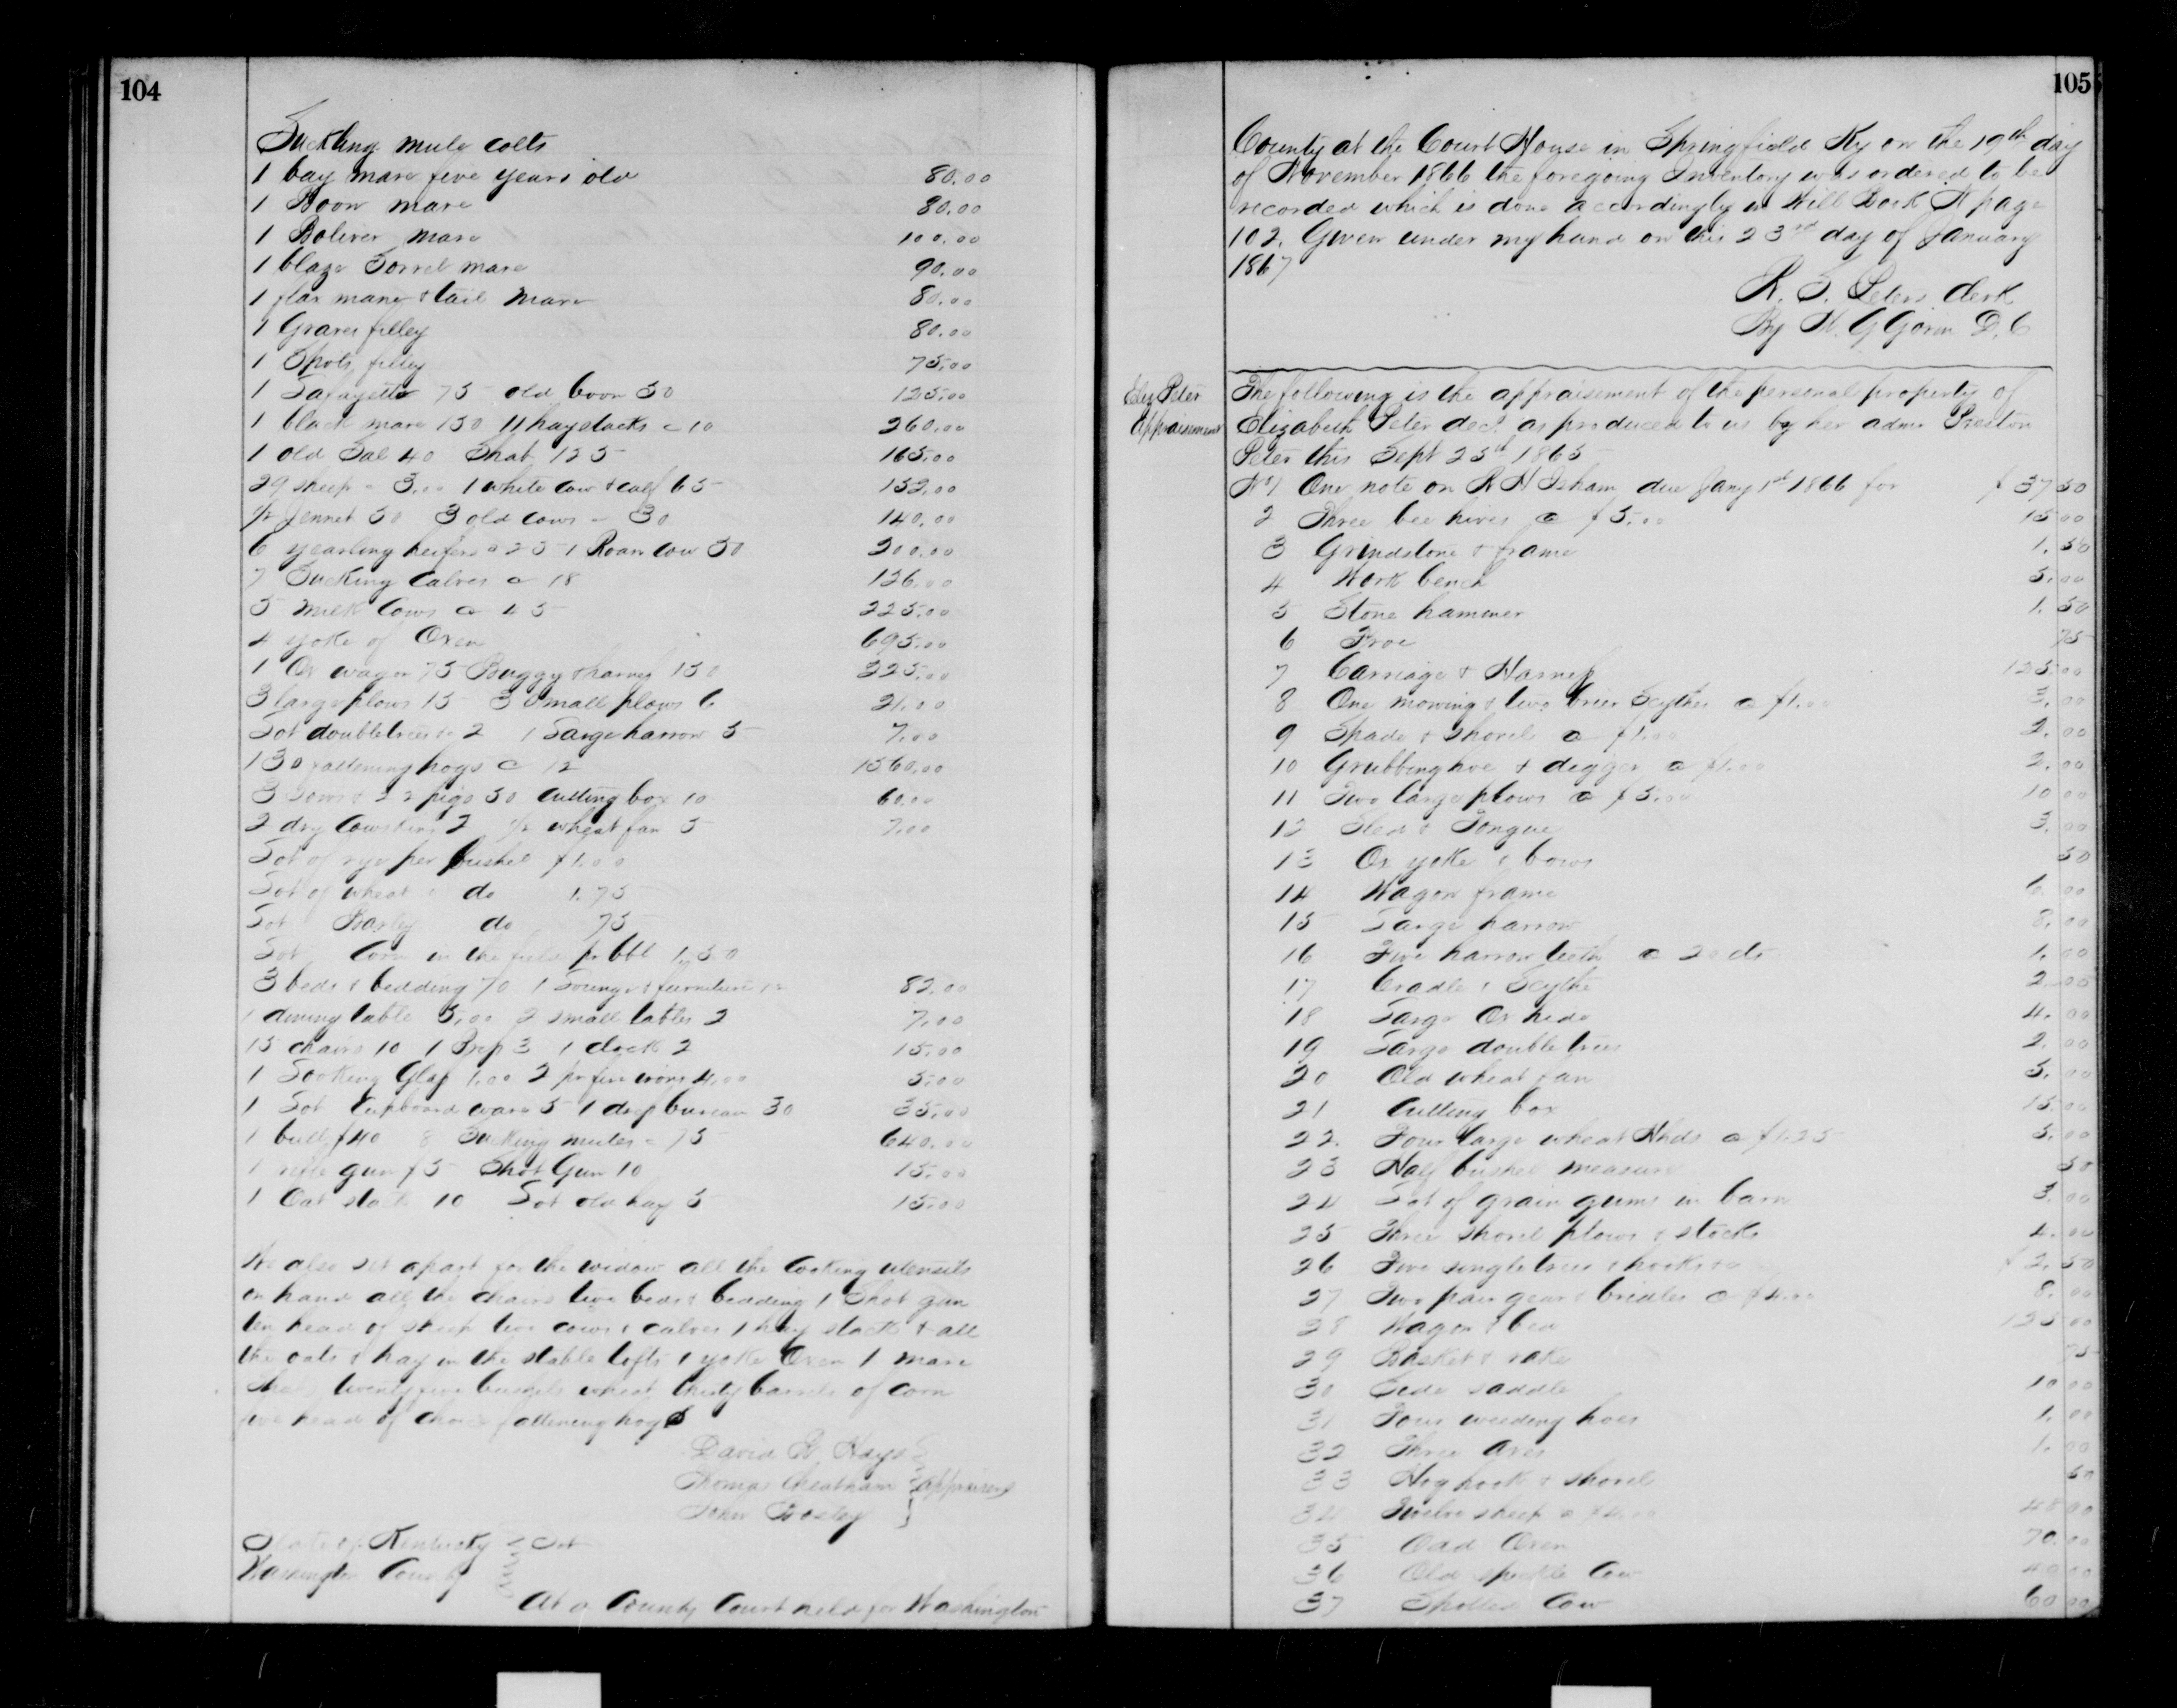 104
Suckling mule colts
1 bay mare five years old 80.00
1 Boon mare 80.00
1 Boliver mare 100.00
1 blaze Sorrel mare 90.00
1 flax mane & tail mare 80.00
1 Graves filley 80.00
1 Shots filley 75.00
1 Lafayette 75 old boon 50 125.00
1 black mare 150 11 haystacks @ 10 260.00
1 old Sal 40 Shab 125 165.00
29 sheep @ 3.00 1 white cow & calf 65 152.00
1/2 Jennet 50 3 old cows @ 30 140.00
6 yearling heifers @ 25 1 Roan cow 50 200.00
7 Sucking calves @ 18 126.00
5 milk cows @ 45 225.00
4 yoke of Oxen 695.00
1 Ox wagon 75 Buggy & harness 150 225.00
3 large plows 15 3 small plows 6 21.00
Lot doubletrees & 2 1 Large harrow 5 7.00
130 fattening hogs @ 12 1560.00
3 sows & 22 pigs 50 Cutting box 10 60.00
2 dry cowskins 2 1/2 wheat fan 5 7.00
Lot of rye per bushel $1.00
Lot of wheat do 1.75
Lot Barley do 75
Lot Corn in the field pr bbl 1.50
3 beds & bedding 70 1 Lounge & furniture 12 82.00
1 dining table 5.00 2 small tables 2 7.00
15 chairs 10 1 Press 3 1 clock 2 15.00
1 Looking Glass 1.00 2 pr fire irons 4.00 5.00
1 Lot Cupboard ware 5 1 desk bureau 30 35.00
1 bull $40 8 Sucking mules @ 75 640.00
1 rifle gun $5 Shot Gun 10 15.00
1 Oat stack 10 Lot old hay 5 15.00
We also set apart for the widow all the cooking utensils
on hand all the chairs two beds & bedding 1 Shot gun
ten head of sheep two cows & calves 1 hay stack & all
the oats & hay in the stable lofts 1 yoke Oxen 1 mare
twenty five bushels wheat thirty barrels of corn
five head of choice fattening hogs
David R Hays
Thomas Cheatham appraisers
John Bosley
State of Kentucky Sct
Washington County
At a County Court held for Washington
105
County at the Court House in Springfield Ky on the 19th day
of November 1866 the foregoing Inventory was ordered to be
recorded which is done accordingly in Will Book N page
102. Given under my hand on this 23rd day of January
1867
R. S. Peters Clerk
By W. G Gorin D.C
Eliz Peter
Appraisement
The following is the appraisement of the personal property of
Elizabeth Peter decd. as produced to us by her admr Preston
Peter this Sept 25th 1865
No 1 One note on R N Isham due Jany 1st 1866 for $ 37 50
2 Three bee hives @ $5.00 15 00
3 Grindstone & frame 1.50
4 Work bench 5.00
5 Stone hammer 1.50
6 Froe 75
7 Carriage & Harness 125.00
8 One mowing & two brier Scythes @ $1.00 3.00
9 Spade & Shovel @ $1.00 2.00
10 Grubbing hoe & digger @ $1.00 2.00
11 Two large plows @ $5.00 10 00
12 Sled & Tongue 3.00
13 Ox yoke & bows 50
14 Wagon frame 6.00
15 Large harrow 8.00
16 Five harrow teeth @ 20 cts 1.00
17 Cradle & Scythe 2.00
18 Large Ox hide 4.00
19 Large double trees 2.00
20 Old wheat fan 5.00
21 Cutting box 15.00
22. Four large wheat Hhds @ $1.25 5.00
23 Half bushel measure 50
24 Lot of grain gums in barn 3.00
25 Three shovel plows & stocks 4.00
26 Five single trees & hooks $ 2.50
27 Two pair gear & bridles @ $4.00 8.00
28 Wagon & bed 125 00
29 Basket & rake 75
30 Side saddle 10 00
31 Four weeding hoes 1.00
32 Three axes 1.00
33 Hog hook & shovel 50
34 Twelve sheep @ $4.00 48 00
35 Odd Oxen 70.00
36 Old speckle Cow 40 00
37 Spotted Cow 60 00